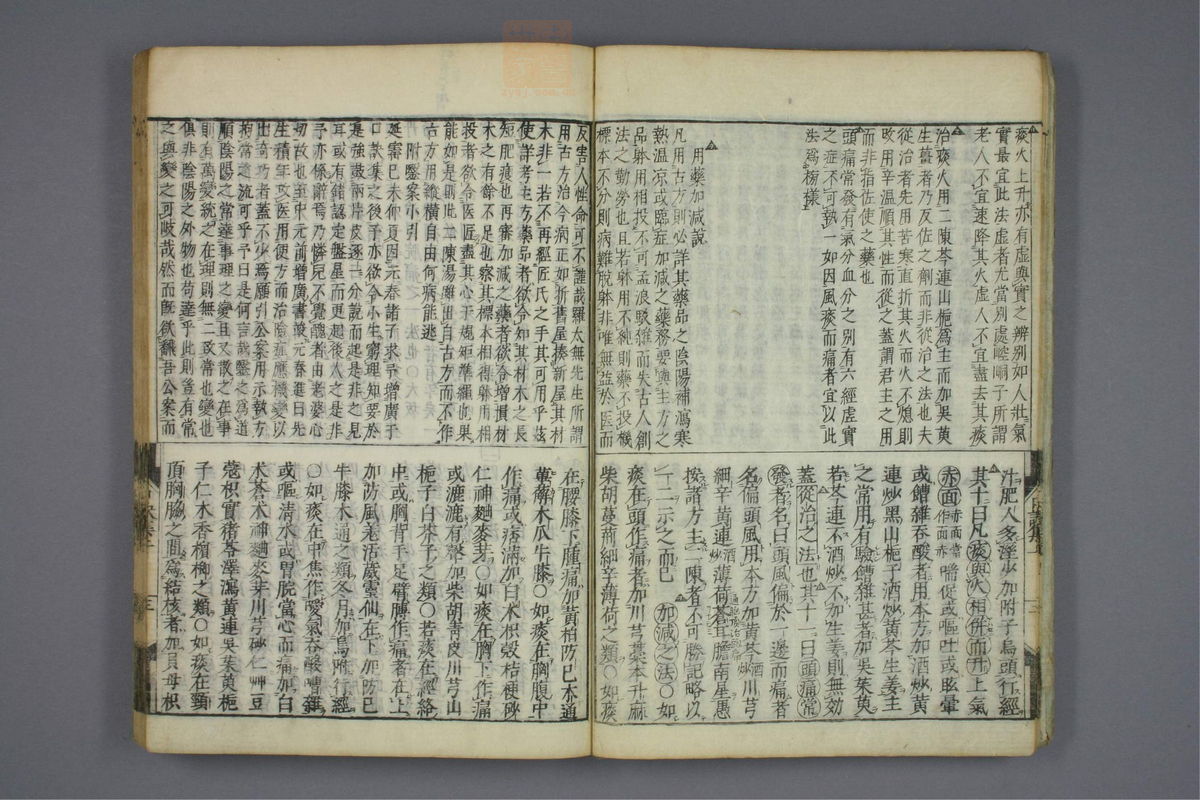 痰火上升亦有虛與實之辨別如人壯氣
實最宜此法虛者尤當別處啶嗣子所謂
老人不宜速降其火虛人不宜盡去其痰
治痰火用二陳芩連山梔為主而加吳萸
生薑者乃反佐之劑而非從治之法也夫
從治者先用苦寒直折其火而火不熄則
改用辛溫順其性而從之蓋謂君主之用
而非指佐使之藥也
頭痛常發有氣分血分之別有六經虛實
之症不可執一如因風痰而痛者宜以此
法為榜樣
用藥加減說
凡用古方則必詳其藥品之陰陽補瀉寒
熱溫涼或臨症加減之藥務要與主方之
品躰用相投不可孟浪駁雜而失古人創
法之勤勞也且若躰用不純則藥不投機
標本不分則病難脫躰非唯無益於医而
反害人性命可不謹哉羅太無先生所謂
用古方治今病正如折舊屋揍新屋其材
木非一若不再經匠氏之手其可用乎茲
使詳考主方藥品者欲令如其材木之長
短肥瘦也再審加減之藥者欲令增損材
木之有餘不足也察其標本相得躰用相
投者欲令医匠盡其心于規矩準繩也果
能如是則此二陳湯雖出自古方而不作
古方用縱橫自由何病能逃
附醫案小引
延寶己未仲夏因元春諸子求予增廣于
口訣集之後予亦欲令小生窮理知要於
是強鼓兩片皮逐一分說而起是非之見
耳或有錯認定盤星而更起後人之是非
予亦係辭焉乃憐兒不覺醜者由老婆心
切故也至中元前增廣書竣元春進曰先
生積年攻医用便方而治險症應機變以
出奇巧者蓋不少焉願引公案用示執方
拘常之流可乎予曰是何言哉醫之為道
順陰陽之常達事理之變且又散之在事
則有萬變統之在理則無二致常也變也
俱非陰陽之外物也苟達乎此則豈有常
之與變之可岐哉然而既欲飜吾公案而
汁肥人多溼少加附子烏頭行經
其十曰凡痰與火相併而升上氣
赤面赤面當作面赤喘促或嘔吐或眩暈
或饋雜吞酸者用本方加酒炒黃
連炒黑山梔子酒炒黃芩生姜主
之常用有驗饋雜甚者加吳茱萸
若芩連不酒炒不加生姜則無効
蓋從治之法也其十一曰頭痛常
發者名曰頭風偏於一邊而痛者
名偏頭風用本方加黃芩酒川芎
細辛黃連酒炒薄荷蒼耳膽南星愚
按諸方主二陳者不可勝記略以
十二示之而已加減之法○如
痰在頭作痛者加川芎藁本升麻
柴胡蔓荊細辛薄荷之類○如痰
在腰膝下腫痛加黃柏防己木通
萆薢木瓜牛膝○如痰在胸腹中
作痛或痞滿加白朮枳殼桔梗砂
仁神麯麥芽○如痰在胸下作痛
或漉漉有聲加柴胡青皮川芎山
梔子白芥子之類○若痰在經絡
中或胸背手足臂膊作痛者在上
加防風羌活葳靈仙在下加防己
牛膝木通之類冬月加烏附行經
○如痰在中焦作噯氣吞酸嘈雜
或嘔清水或胃脘當心而痛加白
朮蒼朮神麯麥芽川芎砂仁艸豆
蔻枳實猪苓澤瀉黃連吳茱萸梔
子仁木香檳榔之類○如痰在頸
項胸脇之間為結核者加貝母枳